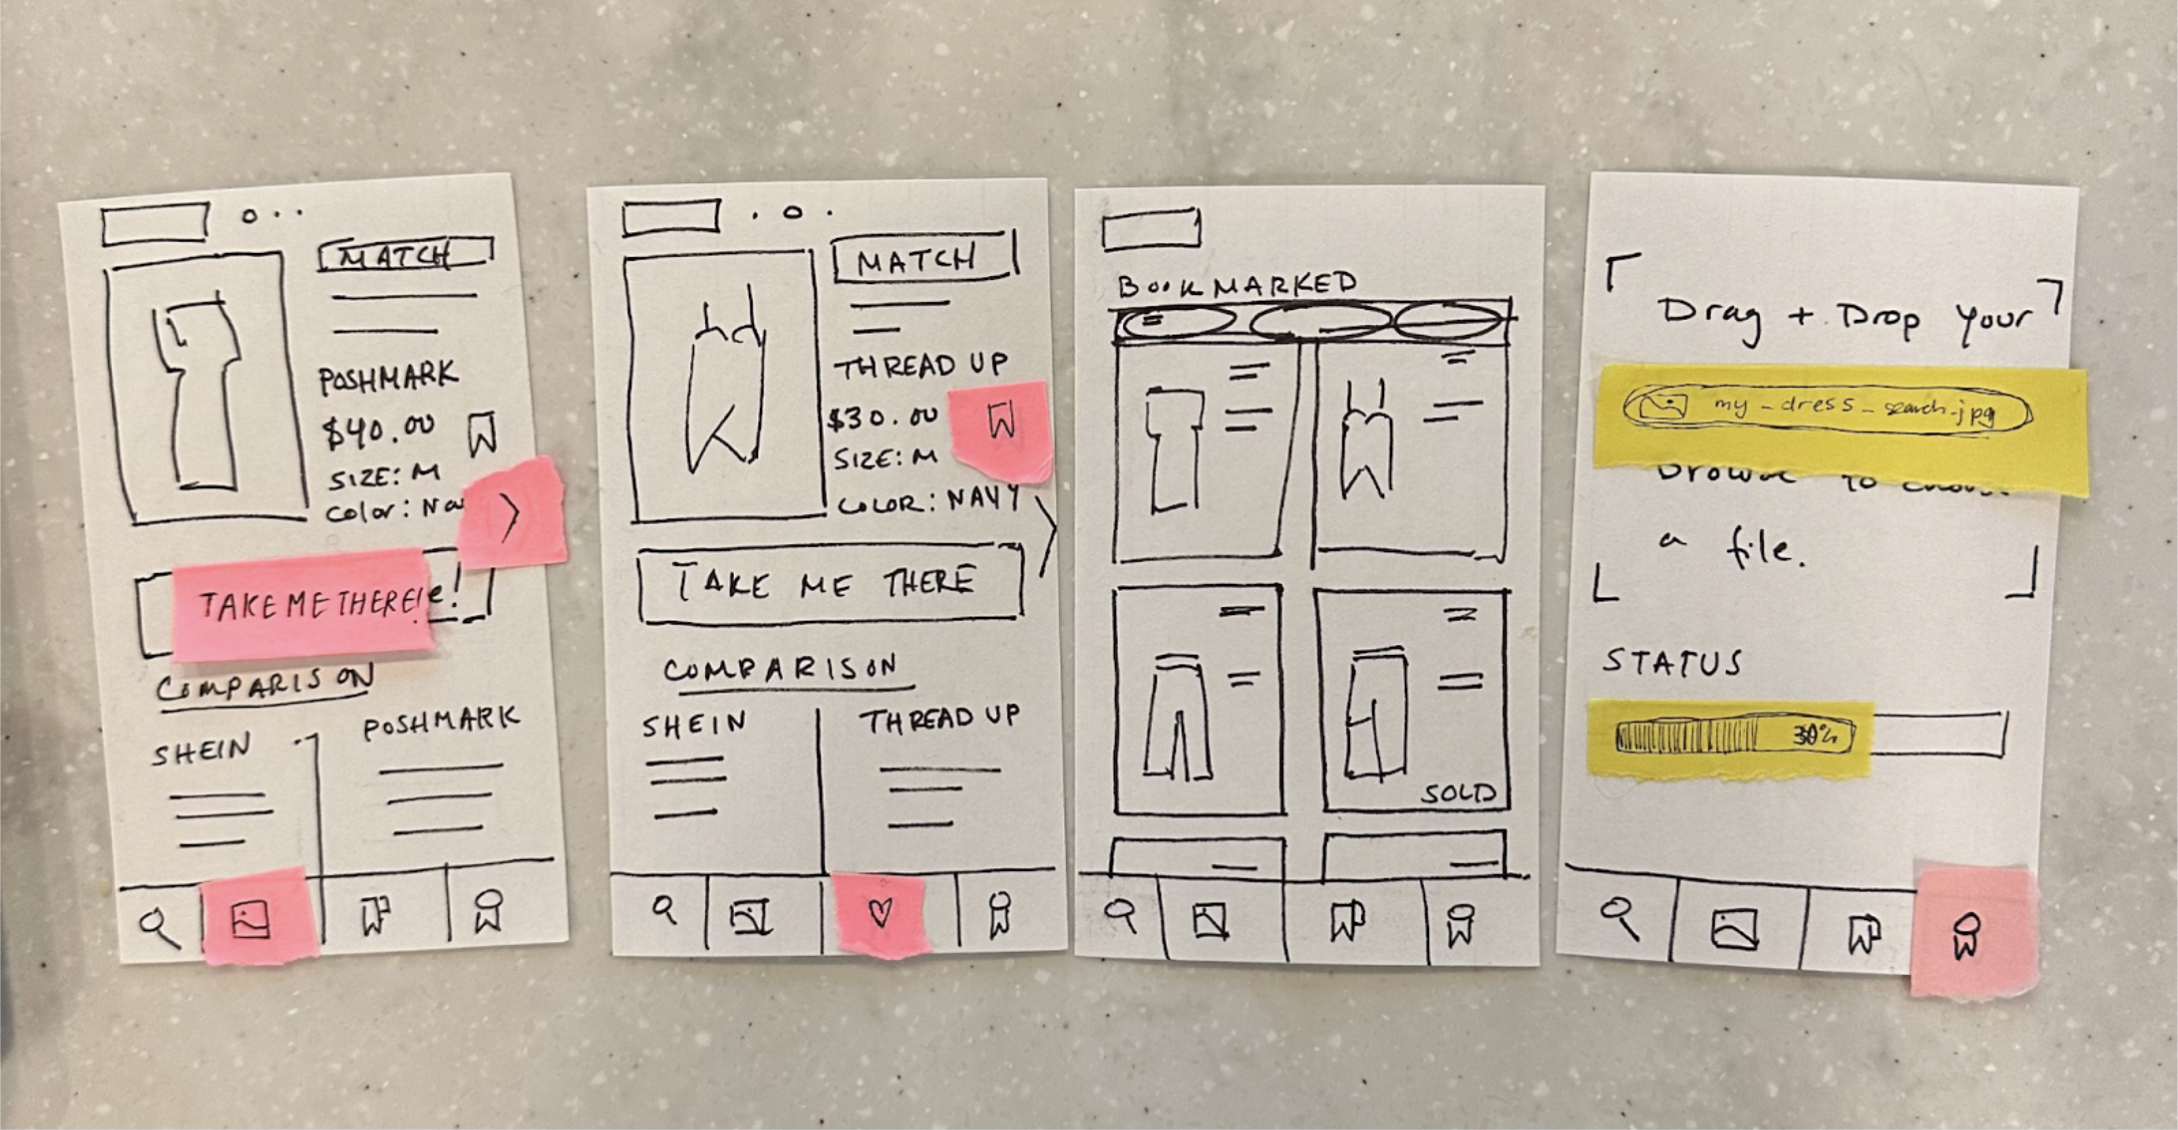 MATCH
POSHMARK
$40.00
SIZE: M
Color:
TAKE ME THERE!
e!
COMPARISON
SHEIN
POSHMARK
MATCH
THREAD UP
$30.00
SIZE: M
COLOR: NAVY
TAKE ME THERE
COMPARISON
SHEIN
THREAD UP
BOOKMARKED
SOLD
Drag + Drop your
my_dress_search.jpg
browse to
a file.
STATUS
30%